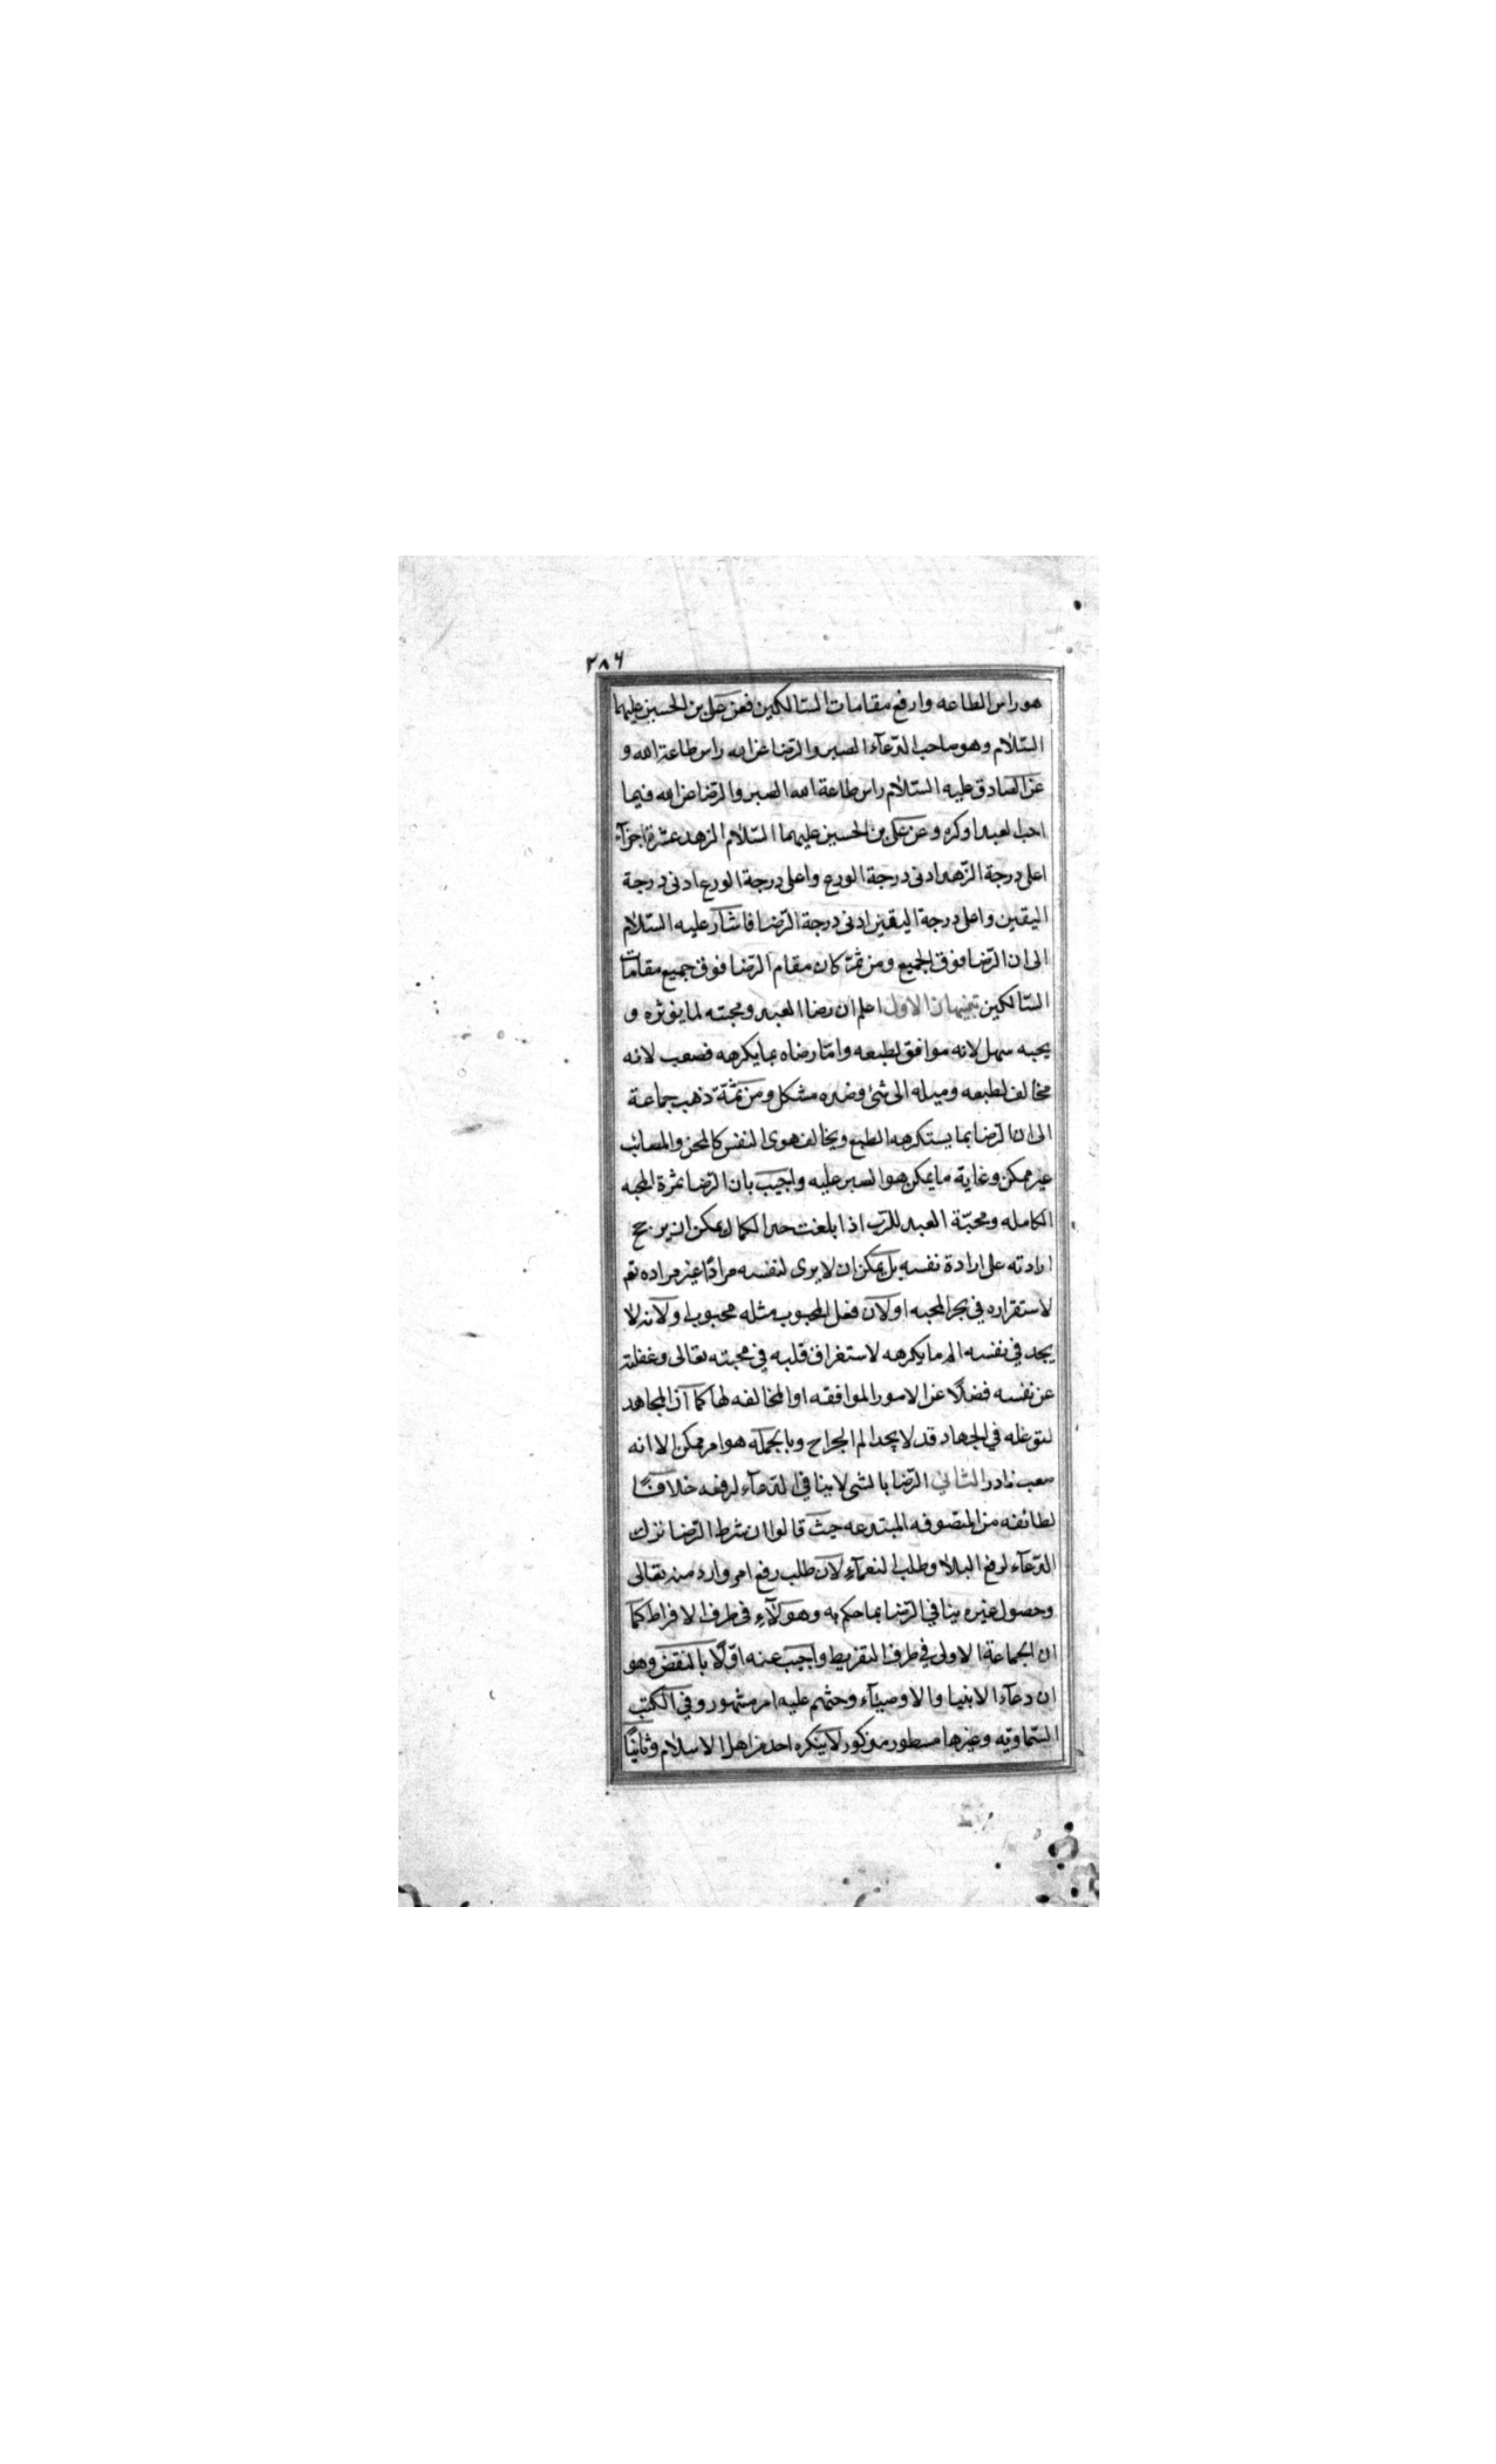 ٢٨٦
هو راس الطاعه وارفع مقامات السّالكين فعن على بن الحسين عليهما
السّلام وهو صاحب الدّعآء الصبر والرّضا عن الله راس طاعة الله و
عن الصادق عليه السّلام راس طاعة الله الصبر والرّضا عن الله فيما
احب العبد او كره وعن على بن الحسين عليهما السّلام الزهد عشرة اجزآء
اعلى درجة الزّهد ادنى درجة الورع واعلى درجة الورع ادنى درجة
اليقين واعلى درجة اليقين ادنى درجة الرّضا فاشار عليه السّلام
الى ان الرّضا فوق الجميع ومن ثمّ كان مقام الرّضا فوق جميع مقامات
السّالكين تنبيهان الاول اعلم ان رضا العبد ومحبته لما يؤثره و
يحبه سهل لانه موافق لطبعه وامّا رضاه بما يكرهه فصعب لانه
مخالف لطبعه وميله الى شئ وضده مشكل ومن ثمّة ذهب جماعة
الى ان الرّضا بما يستكرهه الطبع ويخالف هوى النفس كالمحن والمصائب
غير ممكن وغاية ما يمكن هو الصبر عليه واجيب بان الرّضا ثمرة المحبه
الكامله ومحبّة العبد للرّب اذا بلغت حد الكمال يمكن ان يرجح
ارادته على ارادة نفسه بل يمكن ان لا يرى لنفسه مرادًا غير مراده تعم
لاستقراره في بحر المحبه او لان فعل المحبوب مثله محبوب او لانه لا
يجد في نفسه الم ما يكرهه لاستغراق قلبه في محبته تعالى وغفلته
عن نفسه فضلًا عن الامور الموافقه او المخالفه لها كما انّ المجاهد
لتوغله في الجهاد قد لا يجد الم الجراح وبالجمله هو امر ممكن الا انه
صعب نادر الثاني الرّضا بالشى لا ينافي الدّعآء لرفعه خلافًا
لطائفه من المتصوفه المبتدعه حيث قالوا ان شرط الرّضا ترك
الدّعآء لرفع البلا وطلب النعمآء لان طلب رفع امر وارد منه تعالى
وحصول غيره ينافي الرّضا بما حكم به وهولآء في طرف الافراط كما
ان الجماعة الاولى في طرف التفريط واجيب عنه اوّلًا بالنقض وهو
ان دعآء الانبيا والاوصيآء وحثهم عليه امر مشهور وفي الكتب
السّماويّه وغيرها مسطور مذكور لا ينكره احد من اهل الاسلام وثانيًا